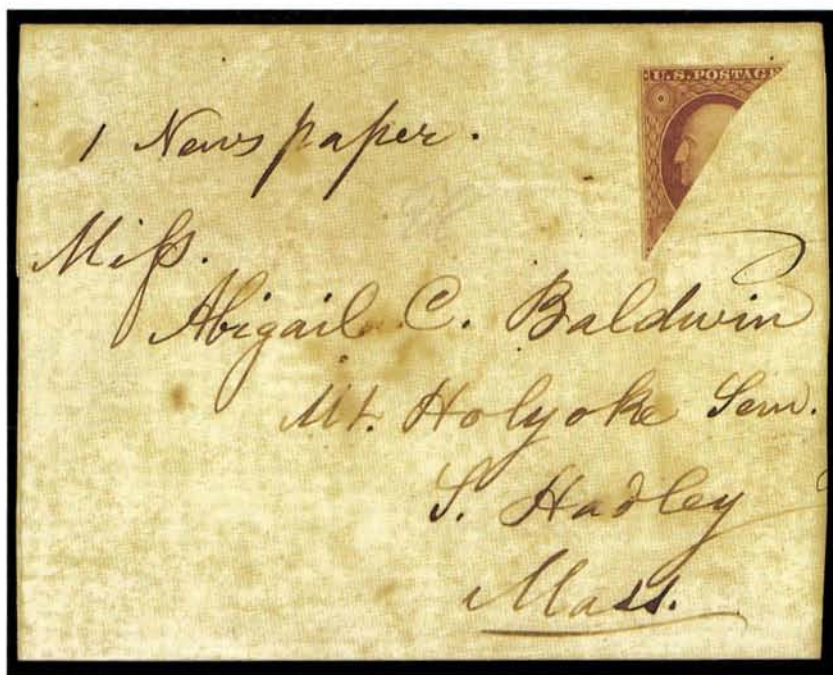 U.S. POSTAGE
1 Newspaper.
Miss.
Abigail C. Baldwin
Mt. Holyoke Sem.
S. Hadley
Mass.